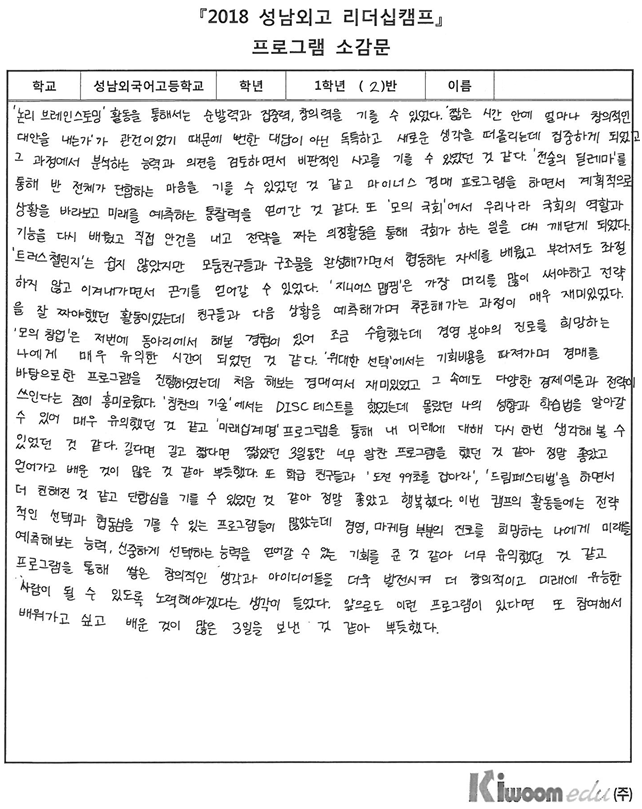 『2018 성남외고 리더십캠프』
프로그램 소감문
학교 성남외국어고등학교 학년 1학년 (2)반 이름
'논리 브레인스토밍' 활동을 통해서는 순발력과 집중력, 창의력을 기를 수 있었다. '짧은 시간 안에 얼마나 창의적인
대안을 내는가'가 관건이었기 때문에 뻔한 대답이 아닌 독특하고 새로운 생각을 떠올리는데 집중하게 되었고
그 과정에서 분석하는 능력과 의견을 검토하면서 비판적인 사고를 기를 수 있었던 것 같다. '전술의 딜레마'를
통해 반 전체가 단합하는 마음을 기를 수 있었던 것 같고 마이너스 경매 프로그램을 하면서 계획적으로
상황을 바라보고 미래를 예측하는 통찰력을 얻어간 것 같다. 또 '모의 국회'에서 우리나라 국회의 역할과
기능을 다시 배웠고 직접 안건을 내고 전략을 짜는 의정활동을 통해 국회가 하는 일을 다시 깨닫게 되었다.
'트러스챌린지'는 쉽지 않았지만 모둠친구들과 구조물을 완성해가면서 협동하는 자세를 배웠고 부러져도 좌절
하지 않고 이겨내가면서 끈기를 얻어갈 수 있었다. '지니어스 맵핑'은 가장 머리를 많이 써야하고 전략
을 잘 짜야했던 활동이었는데 친구들과 다음 상황을 예측해가며 추론해가는 과정이 매우 재미있었다.
'모의 창업'은 저번에 동아리에서 해본 경험이 있어 조금 수월했는데 경영 분야의 진로를 희망하는
나에게 매우 유의한 시간이 되었던 것 같다. '위대한 선택'에서는 기회비용을 따져가며 경매를
바탕으로한 프로그램을 진행하였는데 처음 해보는 경매여서 재미있었고 그 속에도 다양한 경제이론과 전략이
쓰인다는 점이 흥미로웠다. '칭찬의 기술'에서는 DISC테스트를 했었는데 몰랐던 나의 성향과 학습법을 알아갈
수 있어 매우 유의했던 것 같고 '미래십계명' 프로그램을 통해 내 미래에 대해 다시 한번 생각해 볼 수
있었던 것 같다. 길다면 길고 짧다면 짧았던 3일동안 너무 알찬 프로그램을 했던 것 같아 정말 좋았고
얻어가고 배운 것이 많은 것 같아 뿌듯했다. 또 학급 친구들과 '도전 99초를 잡아라', '드림페스티벌'을 하면서
더 친해진 것 같고 단합심을 기를 수 있었던 것 같아 정말 좋았고 행복했다. 이번 캠프의 활동들에는 전략
적인 선택과 협동심을 기를 수 있는 프로그램들이 많았는데 경영, 마케팅 부분의 진로를 희망하는 나에게 미래를
예측해보는 능력, 신중하게 선택하는 능력을 얻어갈 수 있는 기회를 준 것 같아 너무 유익했던 것 같고
프로그램을 통해 쌓은 창의적인 생각과 아이디어들을 더욱 발전시켜 더 창의적이고 미래에 유능한
사람이 될 수 있도록 노력해야겠다는 생각이 들었다. 앞으로도 이런 프로그램이 있다면 또 참여해서
배워가고 싶고 배운 것이 많은 3일을 보낸 것 같아 뿌듯했다.
Kiwoom edu (주)